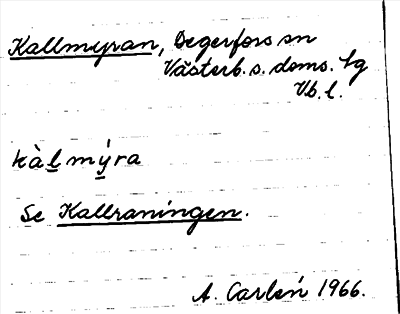 Kallmyran, Degerfors sn
Västerb. s. doms. lg
Vb. l.
kàl̲mý̲ra
Se Kallraningen.
A. Carlén 1966.